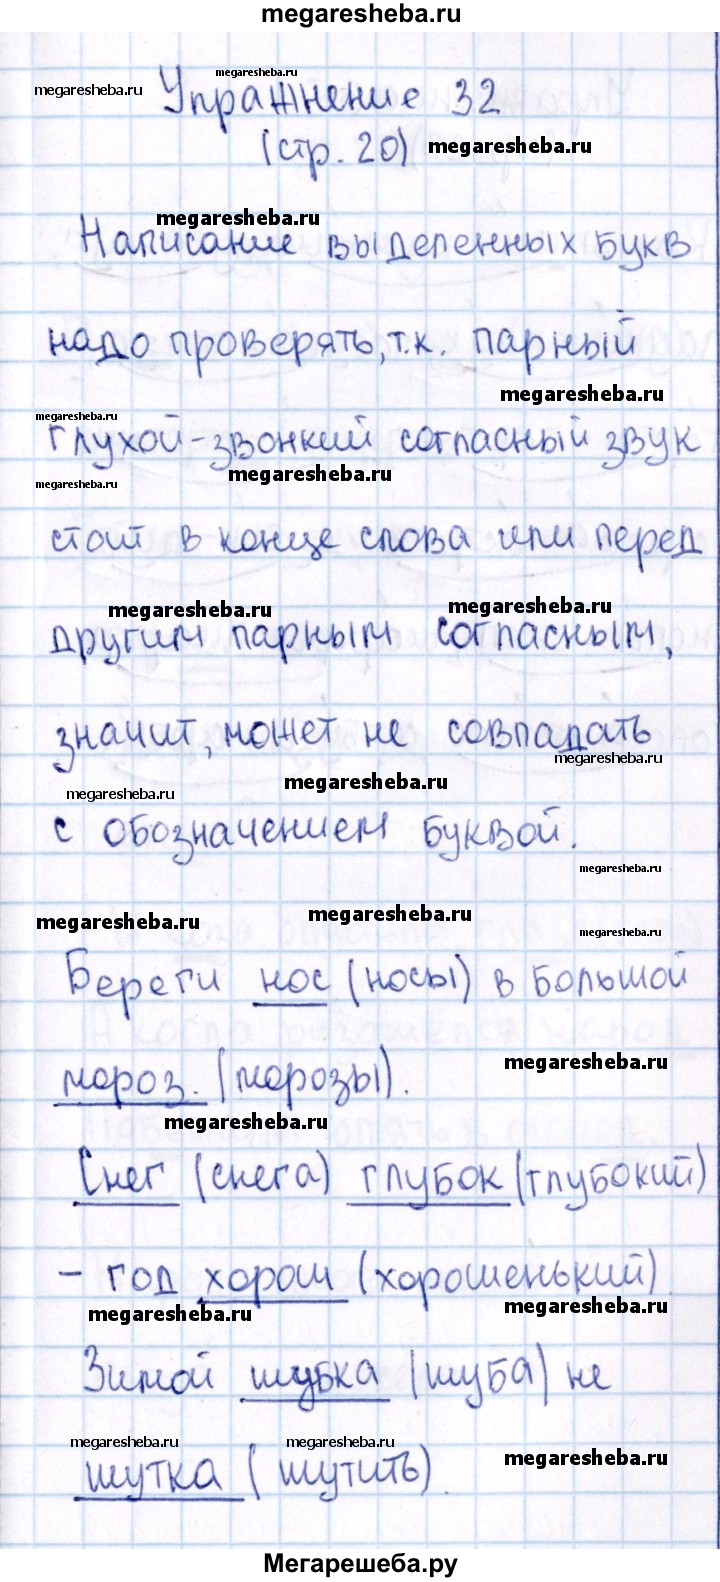 megaresheba.ru
megaresheba.ru
megaresheba.ru
Упражнение 32
(стр. 20) megaresheba.ru
megaresheba.ru
Написание выделенных букв
надо проверять, т.к. парный
megaresheba.ru
megaresheba.ru
глухой-звонкий согласный звук
megaresheba.ru
megaresheba.ru
стоит в конце слова или перед
megaresheba.ru
megaresheba.ru
другим парным согласным,
значит, может не совпадать
megaresheba.ru
megaresheba.ru
megaresheba.ru
с обозначением буквой.
megaresheba.ru
megaresheba.ru
megaresheba.ru
megaresheba.ru
Береги нос (носы) в большой
megaresheba.ru
мороз. (морозы).
megaresheba.ru
Снег (снега) глубок (глубокий)
- год хорош (хорошенький)
megaresheba.ru
megaresheba.ru
Зимой шубка (шуба) не
megaresheba.ru
megaresheba.ru
megaresheba.ru
шутка (шутить).
Мегарешеба.ру